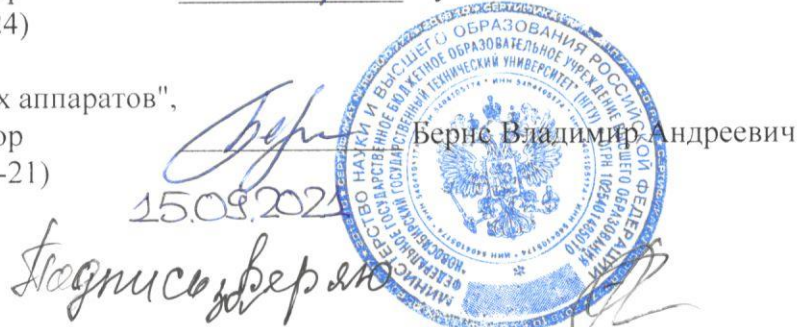 4)
х аппаратов",
ор
Бернс Владимир Андреевич
-21)
15.09.2021
Подпись заверяю
МИНИСТЕРСТВО НАУКИ И ВЫСШЕГО ОБРАЗОВАНИЯ РОССИЙСКОЙ ФЕДЕРАЦИИ
ФЕДЕРАЛЬНОЕ ГОСУДАРСТВЕННОЕ БЮДЖЕТНОЕ ОБРАЗОВАТЕЛЬНОЕ УЧРЕЖДЕНИЕ ВЫСШЕГО ОБРАЗОВАНИЯ
"НОВОСИБИРСКИЙ ГОСУДАРСТВЕННЫЙ ТЕХНИЧЕСКИЙ УНИВЕРСИТЕТ" (НГТУ)